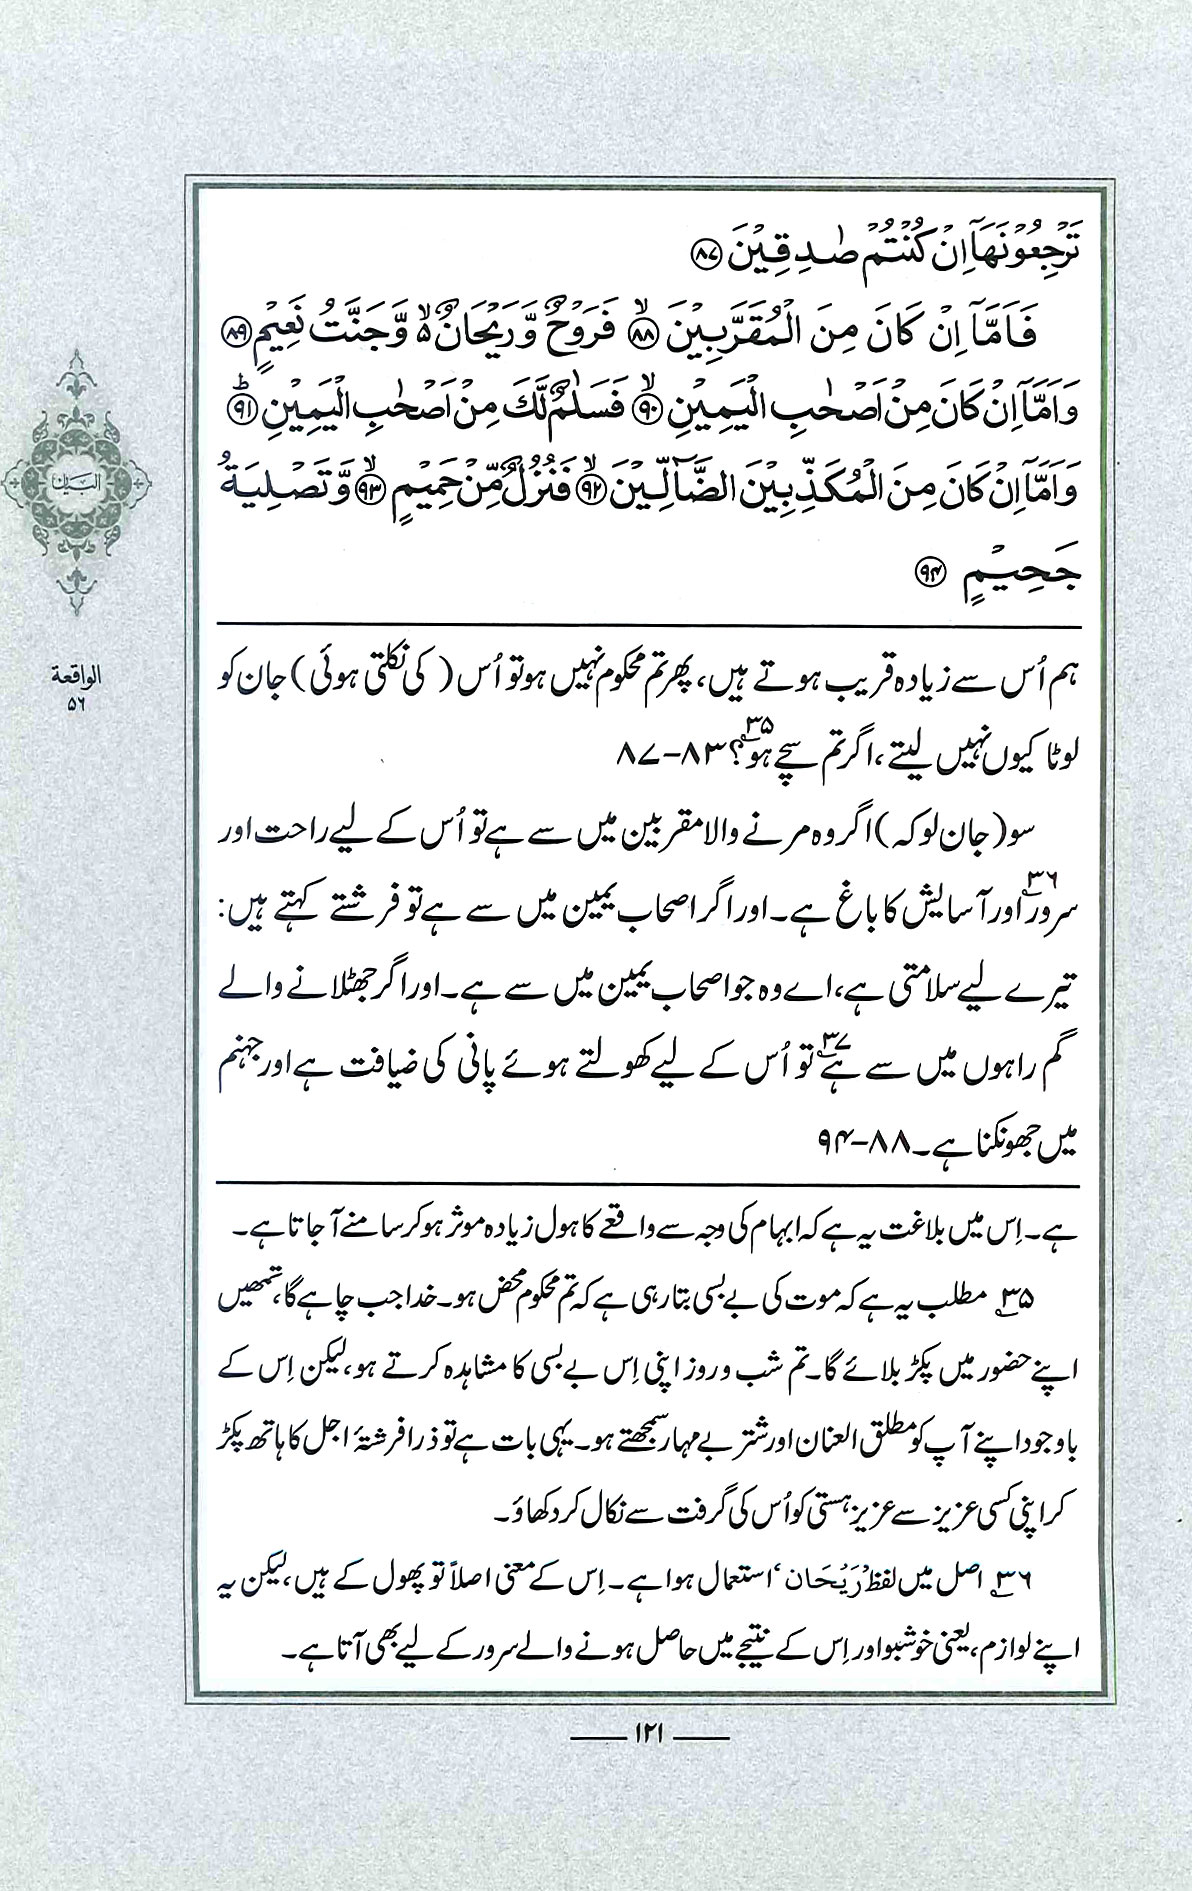 تَرۡجِعُوۡنَهَاۤ اِنۡ كُنۡتُمۡ صٰدِقِيۡنَ ﴿۸۷﴾
فَاَمَّاۤ اِنۡ كَانَ مِنَ الۡمُقَرَّبِيۡنَ ۙ﴿۸۸﴾ فَرَوۡحٌ وَّرَيۡحَانٌ ۙ۬ وَّجَنَّتُ نَعِيۡمٍ ﴿۸۹﴾
وَاَمَّاۤ اِنۡ كَانَ مِنۡ اَصۡحٰبِ الۡيَمِيۡنِ ۙ﴿۹۰﴾ فَسَلٰمٌ لَّكَ مِنۡ اَصۡحٰبِ الۡيَمِيۡنِ ؕ﴿۹۱﴾
وَاَمَّاۤ اِنۡ كَانَ مِنَ الۡمُكَذِّبِيۡنَ الضَّآلِّيۡنَ ۙ﴿۹۲﴾ فَنُزُلٌ مِّنۡ حَمِيۡمٍ ۙ﴿۹۳﴾ وَّتَصۡلِيَةُ
جَحِيۡمٍ ﴿۹۴﴾
ہم اُس سے زیادہ قریب ہوتے ہیں، پھر تم محکوم نہیں ہو تو اُس (کی نکلتی ہوئی) جان کو
لوٹا کیوں نہیں لیتے، اگر تم سچے ہو۳۵؟ ۸۳-۸۷
سو (جان لو کہ) اگر وہ مرنے والا مقربین میں سے ہے تو اُس کے لیے راحت اور
سرور۳۶ اور آسایش کا باغ ہے۔ اور اگر اصحاب یمین میں سے ہے تو فرشتے کہتے ہیں:
تیرے لیے سلامتی ہے، اے وہ جو اصحاب یمین میں سے ہے۔ اور اگر جھٹلانے والے
گم راہوں میں سے ہے۳۷ تو اُس کے لیے کھولتے ہوئے پانی کی ضیافت ہے اور جہنم
میں جھونکنا ہے۔ ۸۸-۹۴
ہے۔ اِس میں بلاغت یہ ہے کہ ابہام کی وجہ سے واقعے کا ہول زیادہ موثر ہو کر سامنے آ جاتا ہے۔
۳۵؂ مطلب یہ ہے کہ موت کی بے بسی بتا رہی ہے کہ تم محکوم محض ہو۔ خدا جب چاہے گا، تمھیں
اپنے حضور میں پکڑ بلائے گا۔ تم شب و روز اپنی اِس بے بسی کا مشاہدہ کرتے ہو، لیکن اِس کے
باوجود اپنے آپ کو مطلق العنان اور شتر بے مہار سمجھتے ہو۔ یہی بات ہے تو ذرا فرشتۂ اجل کا ہاتھ پکڑ
کر اپنی کسی عزیز سے عزیز ہستی کو اُس کی گرفت سے نکال کر دکھاؤ۔
۳۶؂ اصل میں لفظ ’رَيۡحَان‘ استعمال ہوا ہے۔ اِس کے معنی اصلاً تو پھول کے ہیں، لیکن یہ
اپنے لوازم، یعنی خوشبو اور اِس کے نتیجے میں حاصل ہونے والے سرور کے لیے بھی آتا ہے۔
البیان
الواقعة
۵۶
۱۲۱